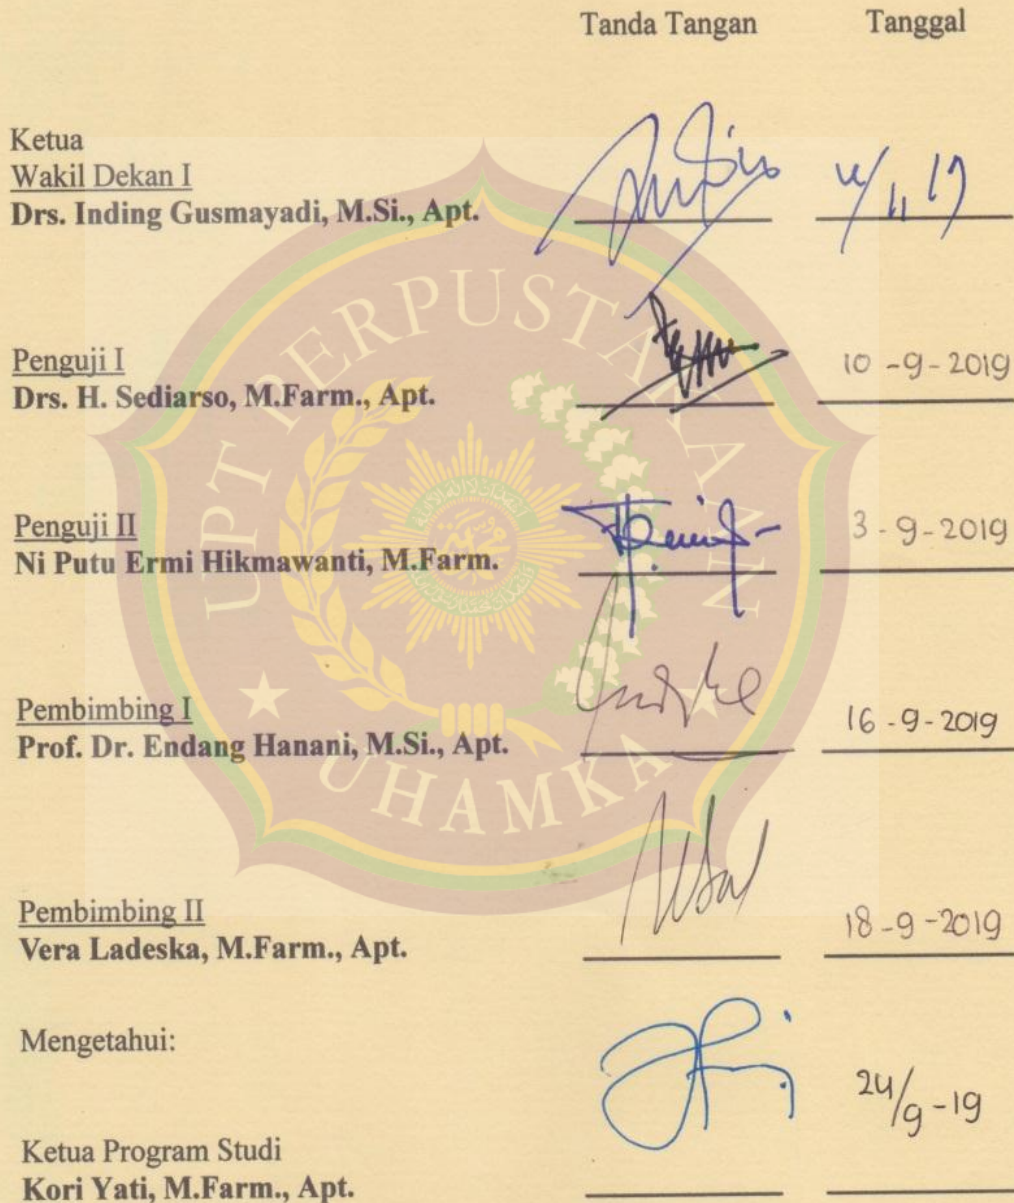 Tanda Tangan Tanggal
Ketua
Wakil Dekan I
Drs. Inding Gusmayadi, M.Si., Apt.
Penguji I
Drs. H. Sediarso, M.Farm., Apt. 10-9-2019
Penguji II
Ni Putu Ermi Hikmawanti, M.Farm. 3-9-2019
Pembimbing I
Prof. Dr. Endang Hanani, M.Si., Apt. 16-9-2019
Pembimbing II
Vera Ladeska, M.Farm., Apt. 18-9-2019
Mengetahui:
24/9-19
Ketua Program Studi
Kori Yati, M.Farm., Apt.
UPT PERPUSTAKAAN
UHAMKA